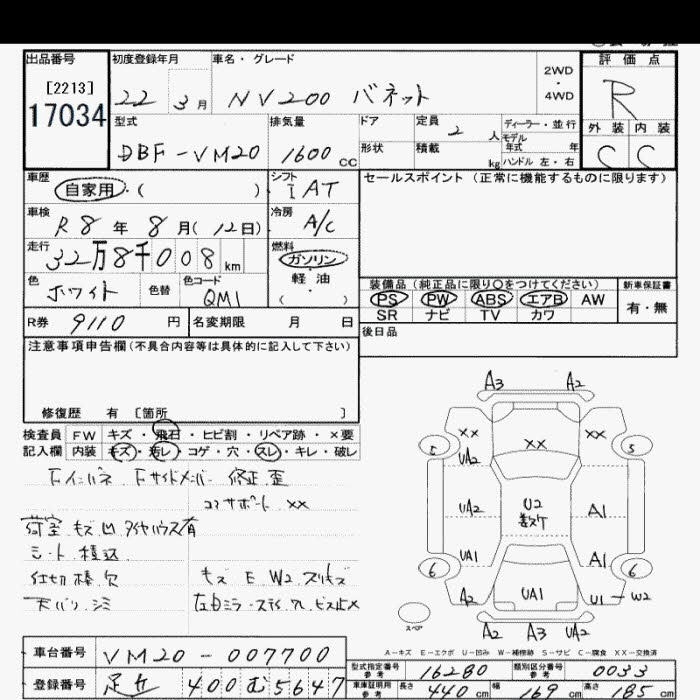 出品番号 初度登録年月 車名・グレード 評価点
[2213]
17034
22 3月 NV200 バネット 2WD・4WD R
型式 排気量 ドア 定員 2人 ディーラー・並行 モデル 年式 年 外装 内装
DBF-VM20 1600cc 形状 積載 kg ハンドル 左・右 C C
車歴 シフト セールスポイント(正常に機能するものに限ります)
自家用・( ) IAT
車検 冷房
R8年8月(12日) A/C
走行 燃料
32万8千008km ガソリン
色 色替 色コード 軽油
ホワイト QM1 ( )
装備品(純正品に限り○をつけてください) 新車保証書
PS PW ABS エアB AW 有・無
SR ナビ TV カワ
R券 9110円 名変期限 月 日
後日品
注意事項申告欄(不具合内容等は具体的に記入して下さい)
修復歴 有 [箇所 ]
検査員 FW キズ・飛石・ヒビ割・リペア跡・×要
記入欄 内装 キズ・汚レ・コゲ・穴・スレ・キレ・破レ
Fインパネ Fサイドメンバー 修正 歪
コアサポート ××
荷室 キズ凹 タイヤハウス有
シート 積込
仕切棒 欠 キズ E W2 スリキズ
天バリ シミ 左Dミラー ステー ワレ ビス止メ
A3 A2
×× ×× ××
5 UA2 5
UA2 U2 数ケ A1
UA1 A1
6 6
A2 UA1 U1-W2
スペア
A2 A3 UA2
A-キズ E-エクボ U-凹み W-補修跡 S-サビ C-腐食 XX-交換済
車台番号 VM20-007700
登録番号 足立 400 む 5647
型式指定番号 参考 16280 類別区分番号 参考 0033
車庫証明用 参考 長さ 440cm 幅 169cm 高さ 185cm